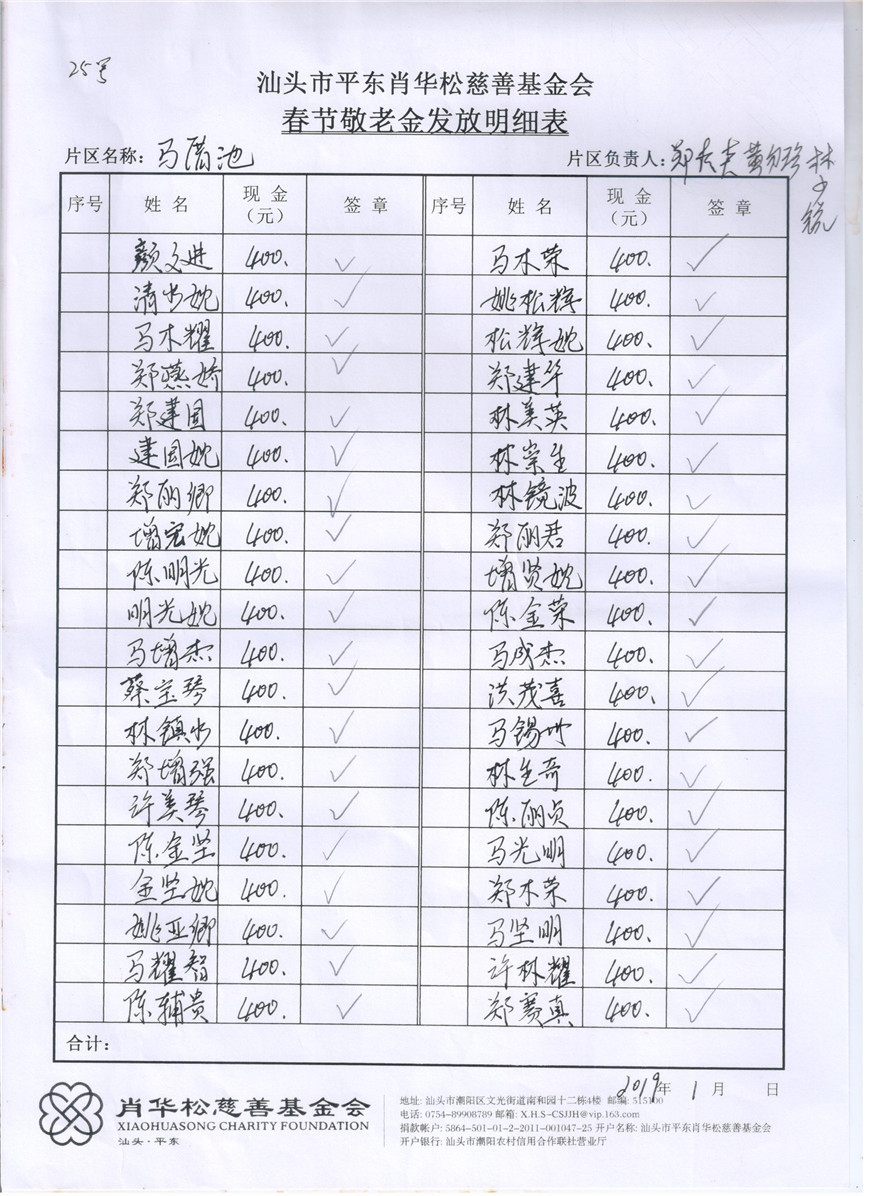 25号
汕头市平东肖华松慈善基金会
春节敬老金发放明细表
片区名称：马厝池 片区负责人：郑
序号 姓名 现金（元） 签章 序号 姓名 现金（元） 签章
颜文进 400. ✓ 马木荣 400. ✓
清出婉 400. ✓ 姚松辉 400. ✓
马木耀 400. ✓ 松辉婉 400. ✓
郑燕娇 400. ✓ 郑建华 400. ✓
郑建国 400. ✓ 林美英 400. ✓
建国婉 400. ✓ 林崇生 400. ✓
郑丽卿 400. ✓ 林镜波 400. ✓
增宏婉 400. ✓ 郑丽君 400. ✓
陈明光 400. ✓ 增贤婉 400. ✓
明光婉 400. ✓ 陈金荣 400. ✓
马增杰 400. ✓ 马成杰 400. ✓
蔡宝琴 400. ✓ 洪茂喜 400. ✓
林镇出 400. ✓ 马锡州 400. ✓
郑增强 400. ✓ 林生奇 400. ✓
许美琴 400. ✓ 陈丽贞 400. ✓
陈金坚 400. ✓ 马光明 400. ✓
金坚婉 400. ✓ 郑木荣 400. ✓
姚亚卿 400. ✓ 马坚明 400. ✓
马耀智 400. ✓ 许林耀 400. ✓
陈辅贵 400. ✓ 郑赛真 400. ✓
合计：
2019年 1月 日
肖华松慈善基金会
XIAOHUASONG CHARITY FOUNDATION
汕头·平东
地址: 汕头市潮阳区文光街道南和园十二栋4楼 邮编: 515100
电话: 0754-89908789 邮箱: X.H.S-CSJJH@vip.163.com
捐款帐户: 5864-501-01-2-2011-001047-25 开户名称: 汕头市平东肖华松慈善基金会
开户银行: 汕头市潮阳农村信用合作联社营业厅